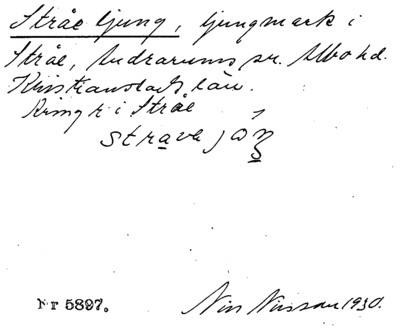 Stråe ljung, ljungmark i
Stråe, Andrarums sr. Albo hd.
Kristianstads län.
i Stråe
Nr 5897. Nils Nilsson 1930.